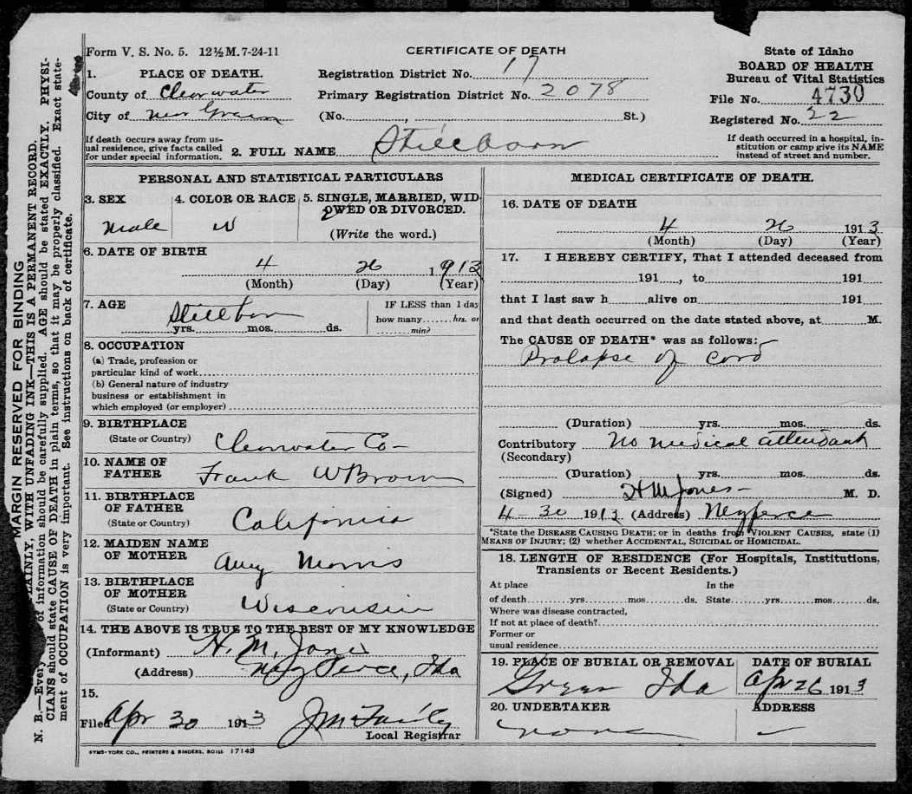 Form V. S. No. 5. 12½ M. 7-24-11
CERTIFICATE OF DEATH
State of Idaho
BOARD OF HEALTH
Bureau of Vital Statistics
File No. 4730
Registered No. 22
If death occurred in a hospital, institution or camp give its NAME instead of street and number.
1. PLACE OF DEATH.
County of Clearwater
City of near
If death occurs away from usual residence, give facts called for under special information.
Registration District No. 17
Primary Registration District No. 2078
(No. , St.)
2. FULL NAME Stillborn
PERSONAL AND STATISTICAL PARTICULARS
3. SEX
male
4. COLOR OR RACE
W
5. SINGLE, MARRIED, WIDOWED OR DIVORCED.
(Write the word.)
6. DATE OF BIRTH
4 26 1913
(Month) (Day) (Year)
7. AGE
Stillborn
yrs. mos. ds.
IF LESS than 1 day
how many hrs. or
min?
8. OCCUPATION
(a) Trade, profession or
particular kind of work
(b) General nature of industry
business or establishment in
which employed (or employer)
9. BIRTHPLACE
(State or Country) Clearwater Co-
10. NAME OF
FATHER Frank W Brown
11. BIRTHPLACE
OF FATHER
(State or Country) California
12. MAIDEN NAME
OF MOTHER Amy Morris
13. BIRTHPLACE
OF MOTHER
(State or Country) Wisconsin
14. THE ABOVE IS TRUE TO THE BEST OF MY KNOWLEDGE
(Informant) H. M. Jones
(Address) Nez Perce, Ida
15.
Filed Apr 30 1913
Local Registrar
SYMS-YORK CO., PRINTERS & BINDERS, BOISE 17143
MEDICAL CERTIFICATE OF DEATH.
16. DATE OF DEATH
4 26 1913
(Month) (Day) (Year)
17. I HEREBY CERTIFY, That I attended deceased from
191 , to 191
that I last saw h alive on 191
and that death occurred on the date stated above, at M.
The CAUSE OF DEATH* was as follows:
Prolapse of cord
(Duration) yrs. mos. ds.
Contributory No medical attendant
(Secondary)
(Duration) yrs. mos. ds.
(Signed) H M Jones M. D.
4-30 1913 (Address) Nezperce
*State the DISEASE CAUSING DEATH; or in deaths from VIOLENT CAUSES, state (1)
MEANS OF INJURY; (2) whether ACCIDENTAL, SUICIDAL or HOMICIDAL.
18. LENGTH OF RESIDENCE (For Hospitals, Institutions,
Transients or Recent Residents.)
At place In the
of death yrs. mos. ds. State yrs. mos. ds.
Where was disease contracted,
If not at place of death?
Former or
usual residence
19. PLACE OF BURIAL OR REMOVAL
Greer Ida
DATE OF BURIAL
Apr 26 1913
20. UNDERTAKER
none
ADDRESS
MARGIN RESERVED FOR BINDING
PLAINLY, WITH UNFADING INK—THIS IS A PERMANENT RECORD.
N. B.—Every of information should be carefully supplied. AGE should be stated EXACTLY. PHYSI-
CIANS should state CAUSE OF DEATH in plain terms, so that it may be properly classified. Exact state-
ment of OCCUPATION is very important. See instructions on back of certificate.